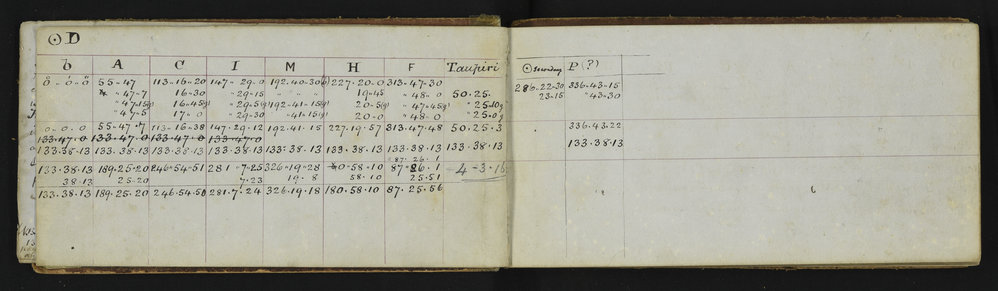 ⊙ D
b A C I M H F Taupiri ⊙ P (?)
0 . 0 . 0 55 . 47 113 . 16 . 20 147 . 29 . 0 192 . 40 . 30 227 . 20 . 0 313 . 47 . 30 286 . 22 . 30 336 . 43 . 15
47 . 7 16 . 30 " 29 . 15 " " " 19 . 45 " 48 . 0 50 . 25 . 23 . 15 " 43 . 30
" 47 . 15 (g) 16 . 45 (g) " 29 . 5 (g) 192 . 41 . 15 (g) 20 . 5 (g) " 47 . 45 (g) " 25 . 10 g
" 47 . 5 17 . 0 " 29 . 30 " 41 . 15 (g) 20 . 0 " 48 . 0 " 25 . 0 g
0 . 0 . 0 55 . 47 . 7 113 . 16 . 38 147 . 29 . 12 192 . 41 . 15 227 . 19 . 57 313 . 47 . 48 50 . 25 . 3 336 . 43 . 22
133 . 47 . 0 133 . 47 . 0 133 . 47 . 0 133 . 47 . 0
133 . 38 . 13 133 . 38 . 13 133 . 38 . 13 133 . 38 . 13 133 . 38 . 13 133 . 38 . 13 133 . 38 . 13 133 . 38 . 13 133 . 38 . 13
87 . 26 . 1
133 . 38 . 13 189 . 25 . 20 246 . 54 . 51 281 . 7 . 25 326 . 19 . 28 0 . 58 . 10 87 . 26 . 1 4 - 3 . 16
38 . 13 25 . 20 7 . 23 19 . 8 58 . 10 25 . 51
133 . 38 . 13 189 . 25 . 20 246 . 54 . 50 281 . 7 . 24 326 . 19 . 18 180 . 58 . 10 87 . 25 . 56